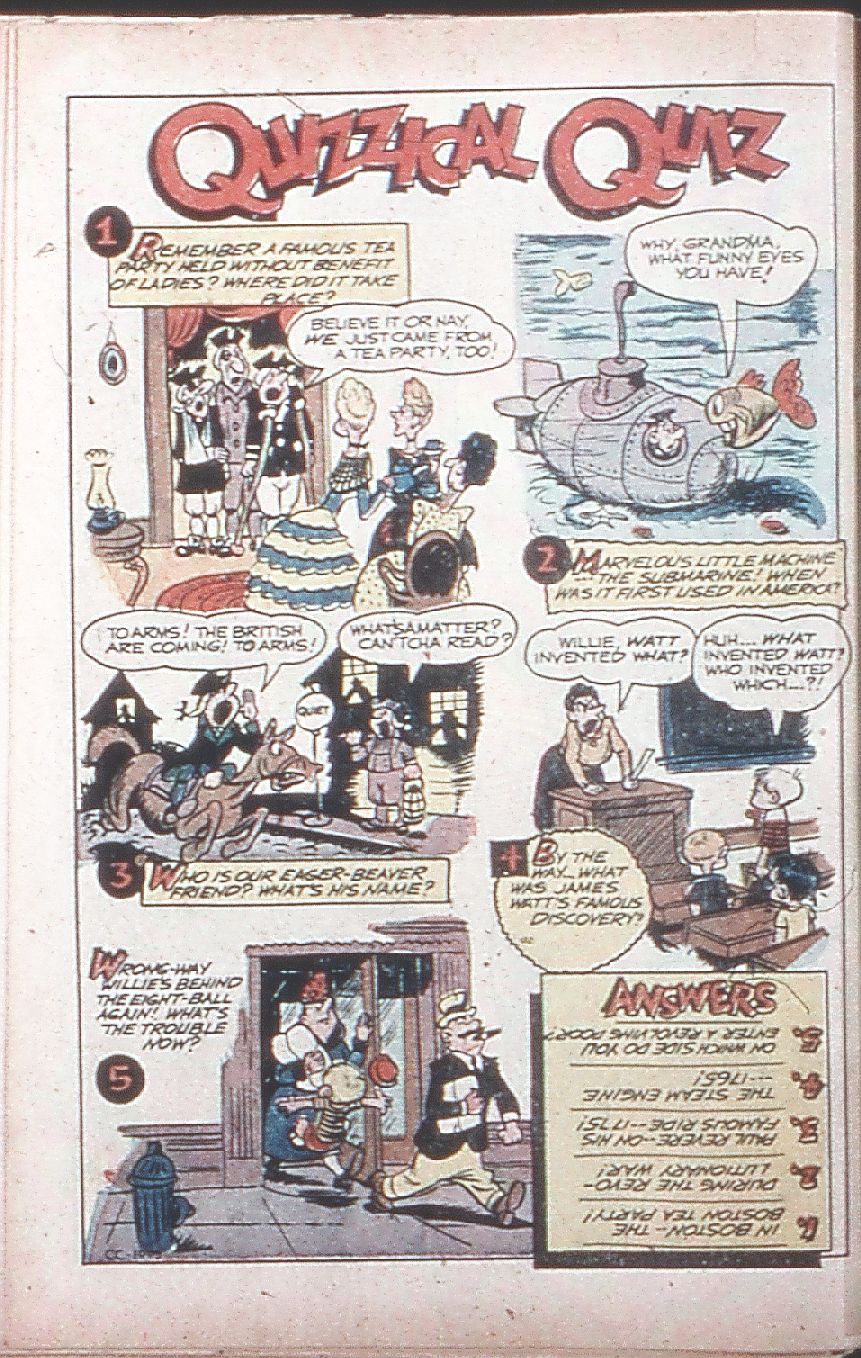 QUIZZICAL QUIZ
1
REMEMBER A FAMOUS TEA
PARTY HELD WITHOUT BENEFIT
OF LADIES? WHERE DID IT TAKE
PLACE?
BELIEVE IT OR NAY,
WE JUST CAME FROM
A TEA PARTY, TOO!
WHY, GRANDMA,
WHAT FUNNY EYES
YOU HAVE!
2
MARVELOUS LITTLE MACHINE
--- THE SUBMARINE! WHEN
WAS IT FIRST USED IN AMERICA?
TO ARMS! THE BRITISH
ARE COMING! TO ARMS!
WHAT'SAMATTER?
CAN'TCHA READ?
QUIET
3
WHO IS OUR EAGER-BEAVER
FRIEND? WHAT'S HIS NAME?
WILLIE, WATT
INVENTED WHAT?
HUH.... WHAT
INVENTED WATT?
WHO INVENTED
WHICH....?!
4
BY THE
WAY... WHAT
WAS JAMES
WATT'S FAMOUS
DISCOVERY?
WRONG-WAY
WILLIE'S BEHIND
THE EIGHT-BALL
AGAIN! WHAT'S
THE TROUBLE
NOW?
5
ANSWERS
1. IN BOSTON - THE
BOSTON TEA PARTY!
2. DURING THE REVO-
LUTIONARY WAR!
3. PAUL REVERE--ON HIS
FAMOUS RIDE--1775!
4. THE STEAM ENGINE
---1765!
5. ON WHICH SIDE DO YOU
ENTER A REVOLVING DOOR?